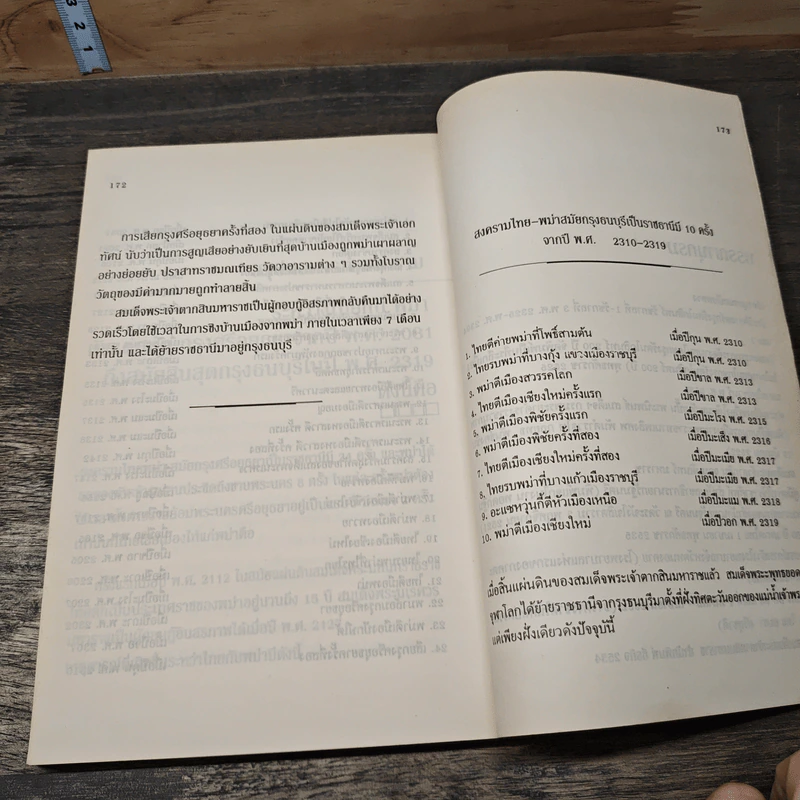 3
2
1
172
การเสียกรุงศรีอยุธยาครั้งที่สอง ในแผ่นดินของสมเด็จพระเจ้าเอก
ทัศน์ นับว่าเป็นการสูญเสียอย่างยับเยินที่สุดบ้านเมืองถูกพม่าเผาผลาญ
อย่างย่อยยับ ปราสาทราชมณเฑียร วัดวาอารามต่าง ๆ รวมทั้งโบราณ
วัตถุของมีค่ามากมายถูกทำลายสิ้น
สมเด็จพระเจ้าตากสินมหาราชเป็นผู้กอบกู้อิสรภาพกลับคืนมาได้อย่าง
รวดเร็วโดยใช้เวลาในการชิงบ้านเมืองจากพม่า ภายในเวลาเพียง 7 เดือน
เท่านั้น และได้ย้ายราชธานีมาอยู่กรุงธนบุรี
173
สงครามไทย-พม่าสมัยกรุงธนบุรีเป็นราชธานีมี 10 ครั้ง
จากปี พ.ศ. 2310-2319
1. ไทยตีค่ายพม่าที่โพธิ์สามต้น เมื่อปีกุน พ.ศ. 2310
2. ไทยรบพม่าที่บางกุ้ง แขวงเมืองราชบุรี เมื่อปีกุน พ.ศ. 2310
3. พม่าตีเมืองสวรรคโลก เมื่อปีขาล พ.ศ. 2313
4. ไทยตีเมืองเชียงใหม่ครั้งแรก เมื่อปีขาล พ.ศ. 2313
5. พม่าตีเมืองพิชัยครั้งแรก เมื่อปีมะโรง พ.ศ. 2315
6. พม่าตีเมืองพิชัยครั้งที่สอง เมื่อปีมะเส็ง พ.ศ. 2316
7. ไทยตีเมืองเชียงใหม่ครั้งที่สอง เมื่อปีมะเมีย พ.ศ. 2317
8. ไทยรบพม่าที่บางแก้วเมืองราชบุรี เมื่อปีมะเมีย พ.ศ. 2317
9. อะแซหวุ่นกี้ตีหัวเมืองเหนือ เมื่อปีมะแม พ.ศ. 2318
10. พม่าตีเมืองเชียงใหม่ เมื่อปีวอก พ.ศ. 2319
เมื่อสิ้นแผ่นดินของสมเด็จพระเจ้าตากสินมหาราชแล้ว สมเด็จพระพุทธยอด
จุฬาโลกได้ย้ายราชธานีจากกรุงธนบุรีมาตั้งที่ฝั่งทิศตะวันออกของแม่น้ำเจ้าพร
แต่เพียงฝั่งเดียวดังปัจจุบันนี้